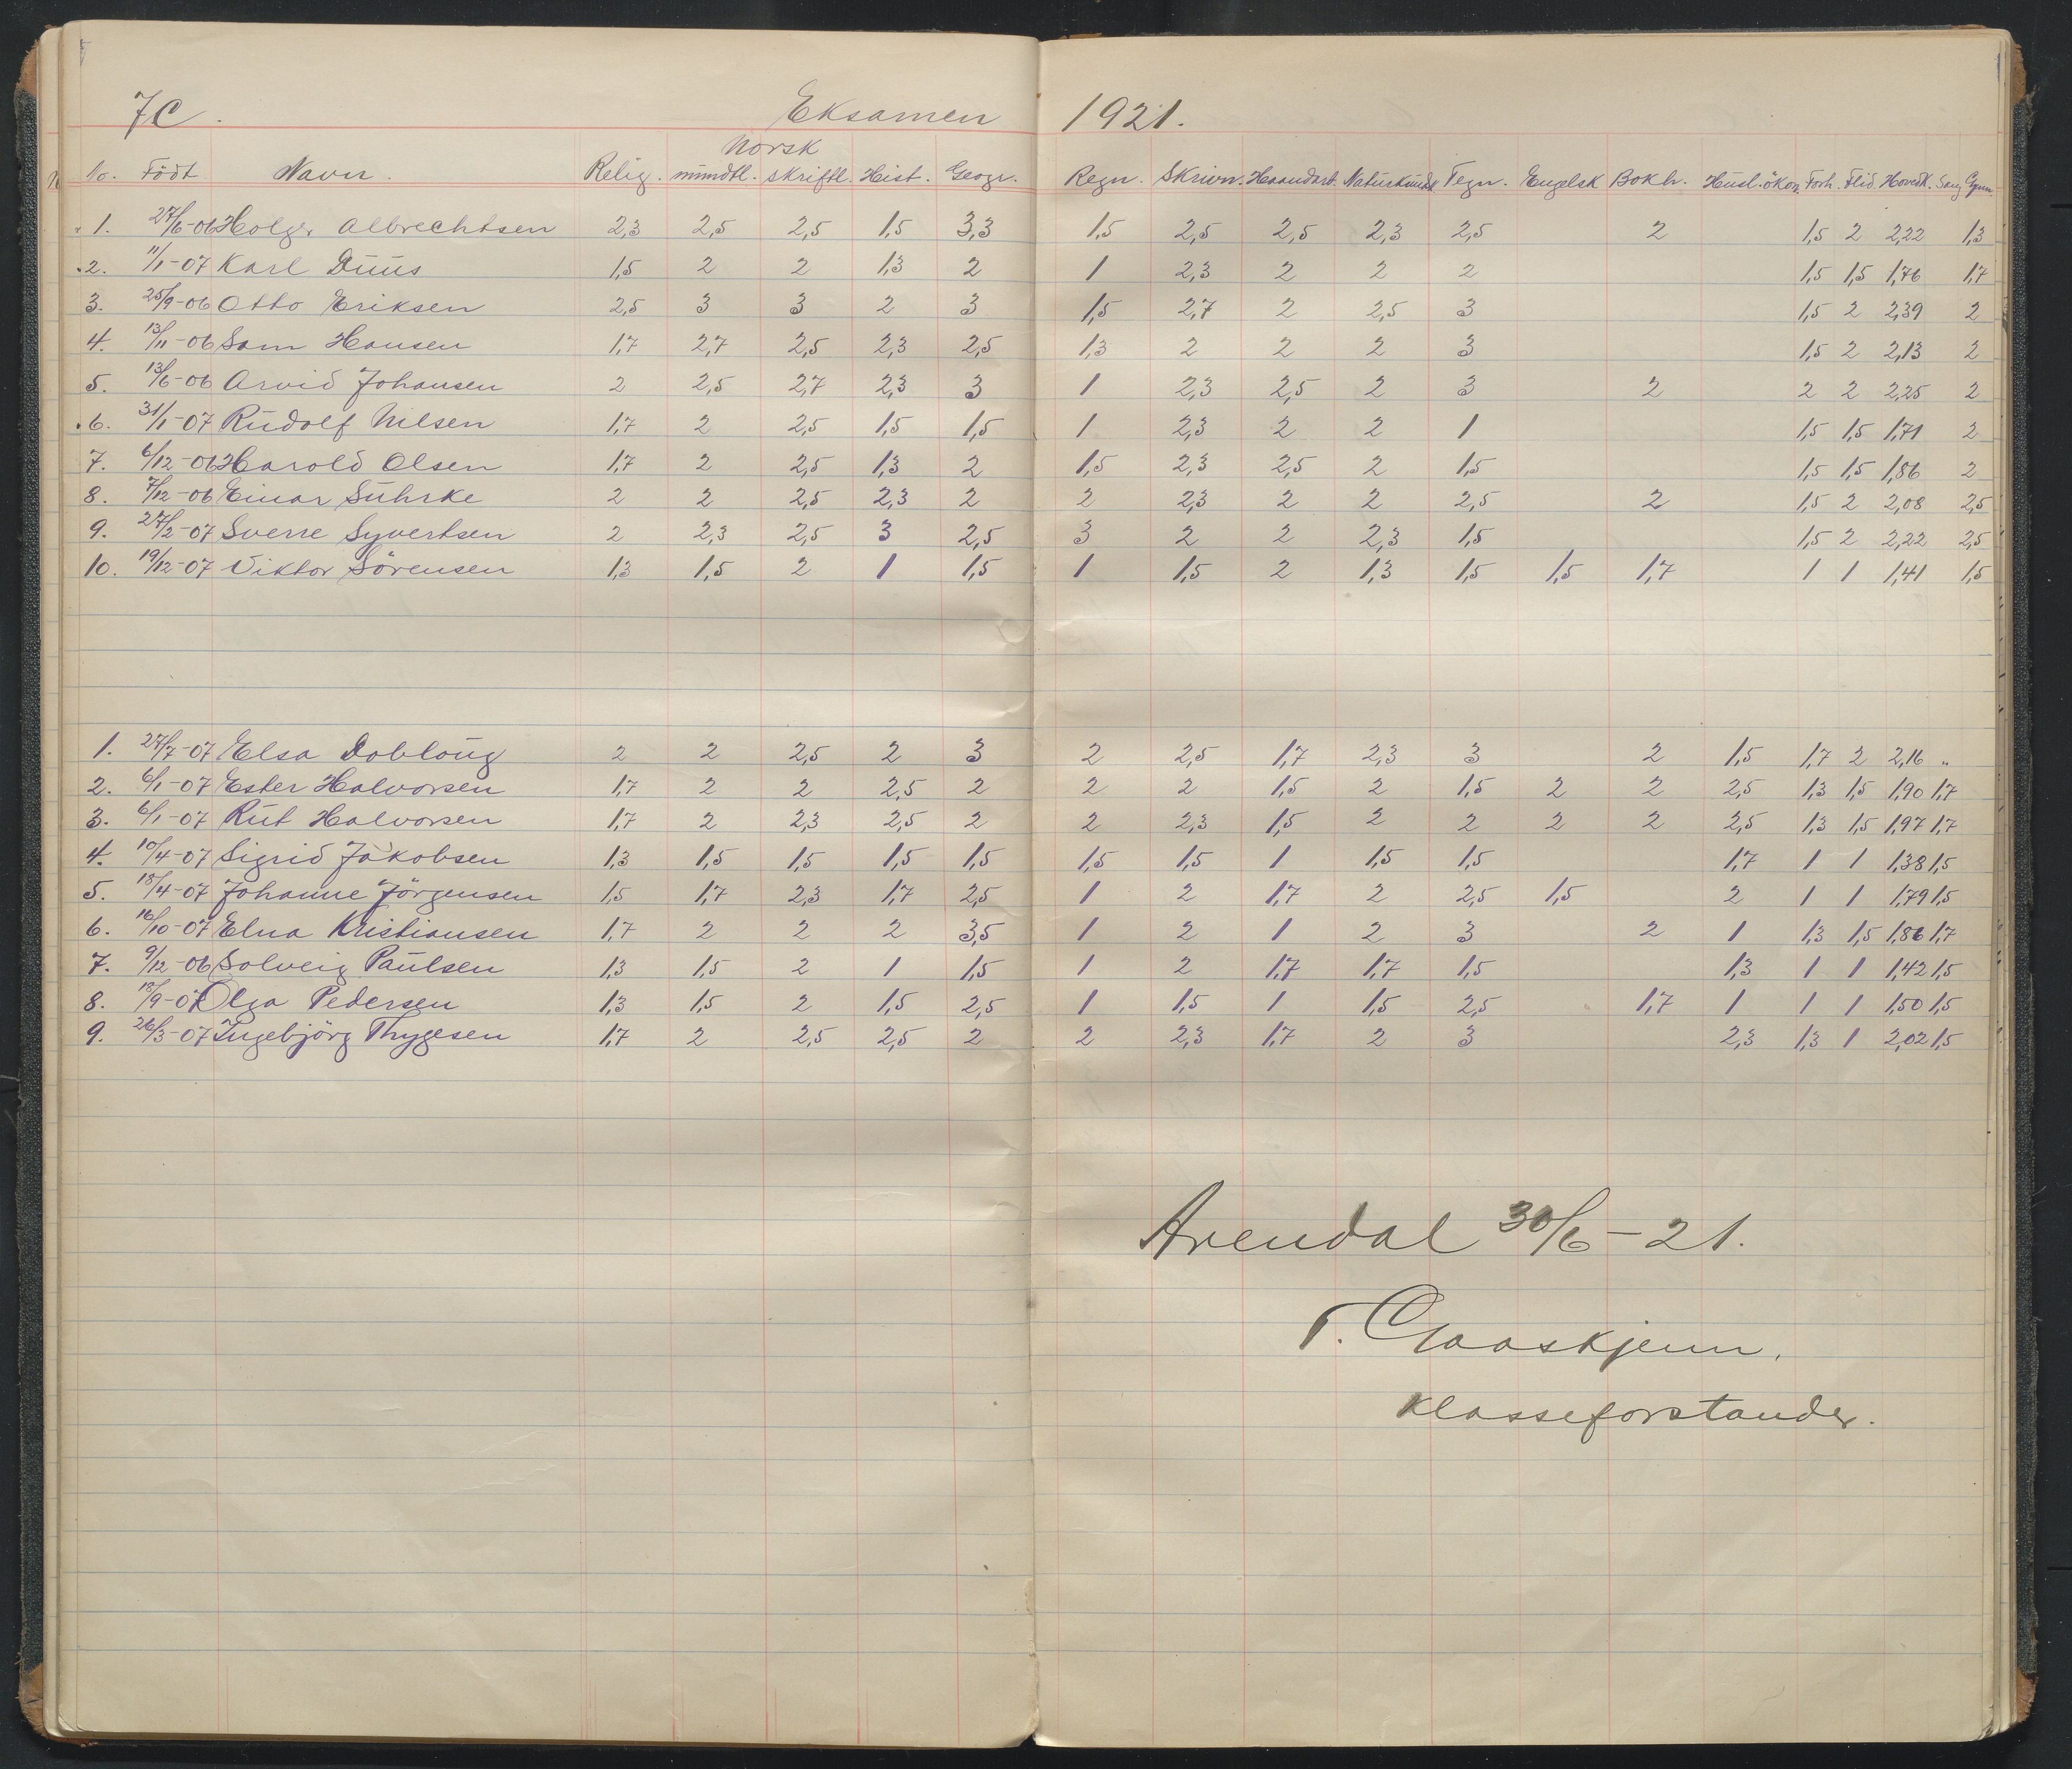 7C. Eksamen 1921.
Norsk
No. Födt Navn. Relig. mundtl. skriftl. Hist. Geogr. Regn. Skrivn. Haandarb. Naturkunds Tegn. Engelsk Bokh. Husl.ökon. Forh. Flid. Hovedk. Sang Gymn.
1. 27/6-06 Holger Albrechtsen 2,3 2,5 2,5 1,5 3,3 1,5 2,5 2,5 2,3 2,5 2 1,5 2 2,22 1,3
2. 11/1-07 Karl Duus 1,5 2 2 1,3 2 1 2,3 2 2 2 1,5 1,5 1,76 1,7
3. 25/9-06 Otto Eriksen 2,5 3 3 2 3 1,5 2,7 2 2,5 3 1,5 2 2,39 2
4. 13/11-06 Sam Hansen 1,7 2,7 2,5 2,3 2,5 1,3 2 2 2 3 1,5 2 2,13 2
5. 13/6-06 Arvid Johansen 2 2,5 2,7 2,3 3 1 2,3 2,5 2 3 2 2 2 2,25 2
6. 31/1-07 Rudolf Nilsen 1,7 2 2,5 1,5 1,5 1 2,3 2 2 1 1,5 1,5 1,71 2
7. 6/12-06 Harald Olsen 1,7 2 2,5 1,3 2 1,5 2,3 2,5 2 1,5 1,5 1,5 1,86 2
8. 7/12-06 Einar Suhrke 2 2 2,5 2,3 2 2 2,3 2 2 2,5 2 1,5 2 2,08 2,5
9. 27/2-07 Sverre Syvertsen 2 2,3 2,5 3 2,5 3 2 2 2,3 1,5 1,5 2 2,22 2,5
10. 19/12-07 Viktor Sörensen 1,3 1,5 2 1 1,5 1 1,5 2 1,3 1,5 1,5 1,7 1 1 1,41 1,5
1. 27/7-07 Elsa Dobloug 2 2 2,5 2 3 2 2,5 1,7 2,3 3 2 1,5 1,7 2 2,16 "
2. 6/1-07 Ester Halvorsen 1,7 2 2 2,5 2 2 2 1,5 2 1,5 2 2 2,5 1,3 1,5 1,90 1,7
3. 6/1-07 Rut Halvorsen 1,7 2 2,3 2,5 2 2 2,3 1,5 2 2 2 2 2,5 1,3 1,5 1,97 1,7
4. 10/4-07 Sigrid Jakobsen 1,3 1,5 1,5 1,5 1,5 1,5 1,5 1 1,5 1,5 1,7 1 1 1,38 1,5
5. 18/4-07 Johanne Jörgensen 1,5 1,7 2,3 1,7 2,5 1 2 1,7 2 2,5 1,5 2 1 1 1,79 1,5
6. 16/10-07 Elna Kristiansen 1,7 2 2 2 3,5 1 2 1 2 3 2 1 1,3 1,5 1,86 1,7
7. 9/12-06 Solveig Paulsen 1,3 1,5 2 1 1,5 1 2 1,7 1,7 1,5 1,3 1 1 1,42 1,5
8. 18/9-07 Olga Pedersen 1,3 1,5 2 1,5 2,5 1 1,5 1 1,5 2,5 1,7 1 1 1 1,50 1,5
9. 26/3-07 Ingebjörg Thygesen 1,7 2 2,5 2,5 2 2 2,3 1,7 2 3 2,3 1,3 1 2,02 1,5
Arendal 30/6-21.
T. Gaaskjenn.
Klasseforstander.